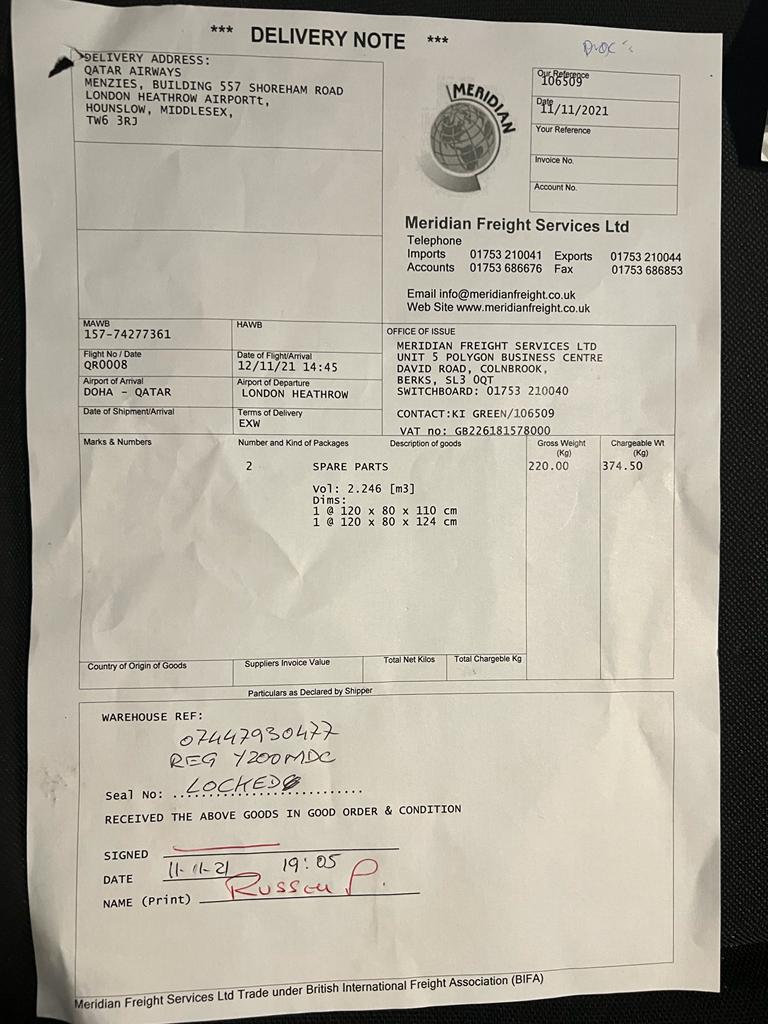 *** DELIVERY NOTE ***
DELIVERY ADDRESS:
QATAR AIRWAYS
MENZIES, BUILDING 557 SHOREHAM ROAD
LONDON HEATHROW AIRPORTt,
HOUNSLOW, MIDDLESEX,
TW6 3RJ
MERIDIAN
Our Reference
106509
Date
11/11/2021
Your Reference
Invoice No.
Account No.
Meridian Freight Services Ltd
Telephone
Imports 01753 210041 Exports 01753 210044
Accounts 01753 686676 Fax 01753 686853
Email info@meridianfreight.co.uk
Web Site www.meridianfreight.co.uk
MAWB
157-74277361
HAWB
Flight No / Date
QR0008
Date of Flight/Arrival
12/11/21 14:45
Airport of Arrival
DOHA - QATAR
Airport of Departure
LONDON HEATHROW
Date of Shipment/Arrival
Terms of Delivery
EXW
OFFICE OF ISSUE
MERIDIAN FREIGHT SERVICES LTD
UNIT 5 POLYGON BUSINESS CENTRE
DAVID ROAD, COLNBROOK,
BERKS, SL3 0QT
SWITCHBOARD: 01753 210040
CONTACT:KI GREEN/106509
VAT no: GB226181578000
Marks & Numbers Number and Kind of Packages Description of goods Gross Weight (Kg) Chargeable Wt (Kg)
2 SPARE PARTS 220.00 374.50
Vol: 2.246 [m3]
Dims:
1 @ 120 x 80 x 110 cm
1 @ 120 x 80 x 124 cm
Country of Origin of Goods Suppliers Invoice Value Total Net Kilos Total Chargeable Kg
Particulars as Declared by Shipper
WAREHOUSE REF:
07447930477
REG Y200MDC
Seal No: LOCKED
RECEIVED THE ABOVE GOODS IN GOOD ORDER & CONDITION
SIGNED
DATE 11-11-21 19:05
NAME (Print) RUSSELL P.
Meridian Freight Services Ltd Trade under British International Freight Association (BIFA)